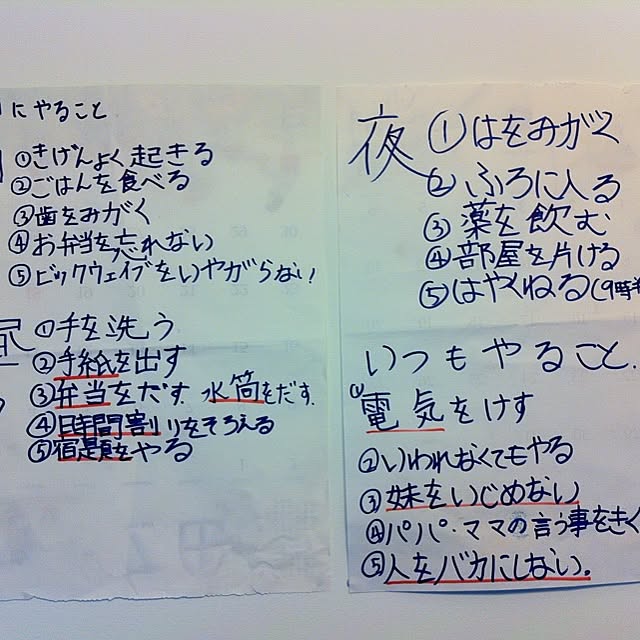 にやること
①きげんよく起きる
②ごはんを食べる
③歯をみがく
④お弁当を忘れない
⑤ビックウェイブをいやがらない!
昼
①手を洗う
②手紙を出す
③弁当をだす 水筒をだす.
④時間割りをそろえる
⑤宿題をやる
夜 ①はをみがく
②ふろに入る
③薬を飲む
④部屋を片ける
⑤はやくねる(9時半
いつもやること.
①電気をけす
②いわれなくてもやる
③妹をいじめない
④パパ・ママの言う事をきく
⑤人をバカにしない.